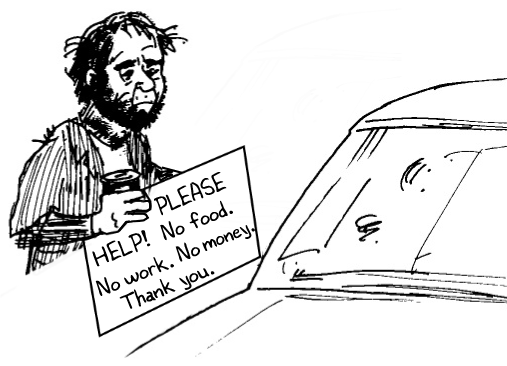 PLEASE
HELP! No food.
No work. No money.
Thank you.